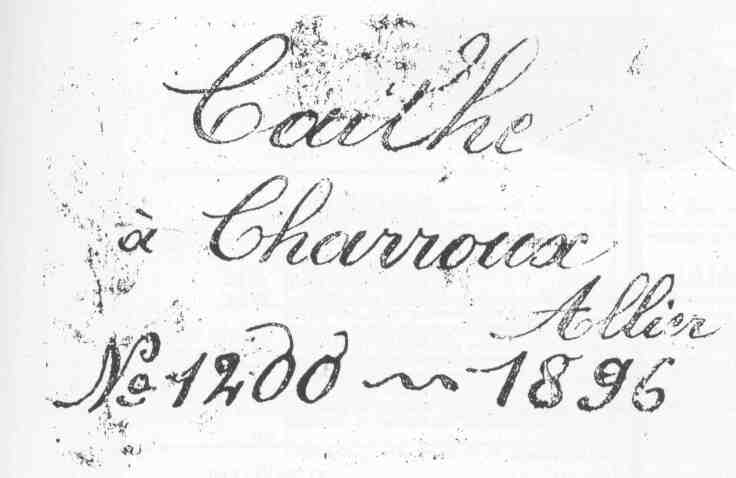 Cailhe
à Charroux
Allier
No 1200 ~ 1896